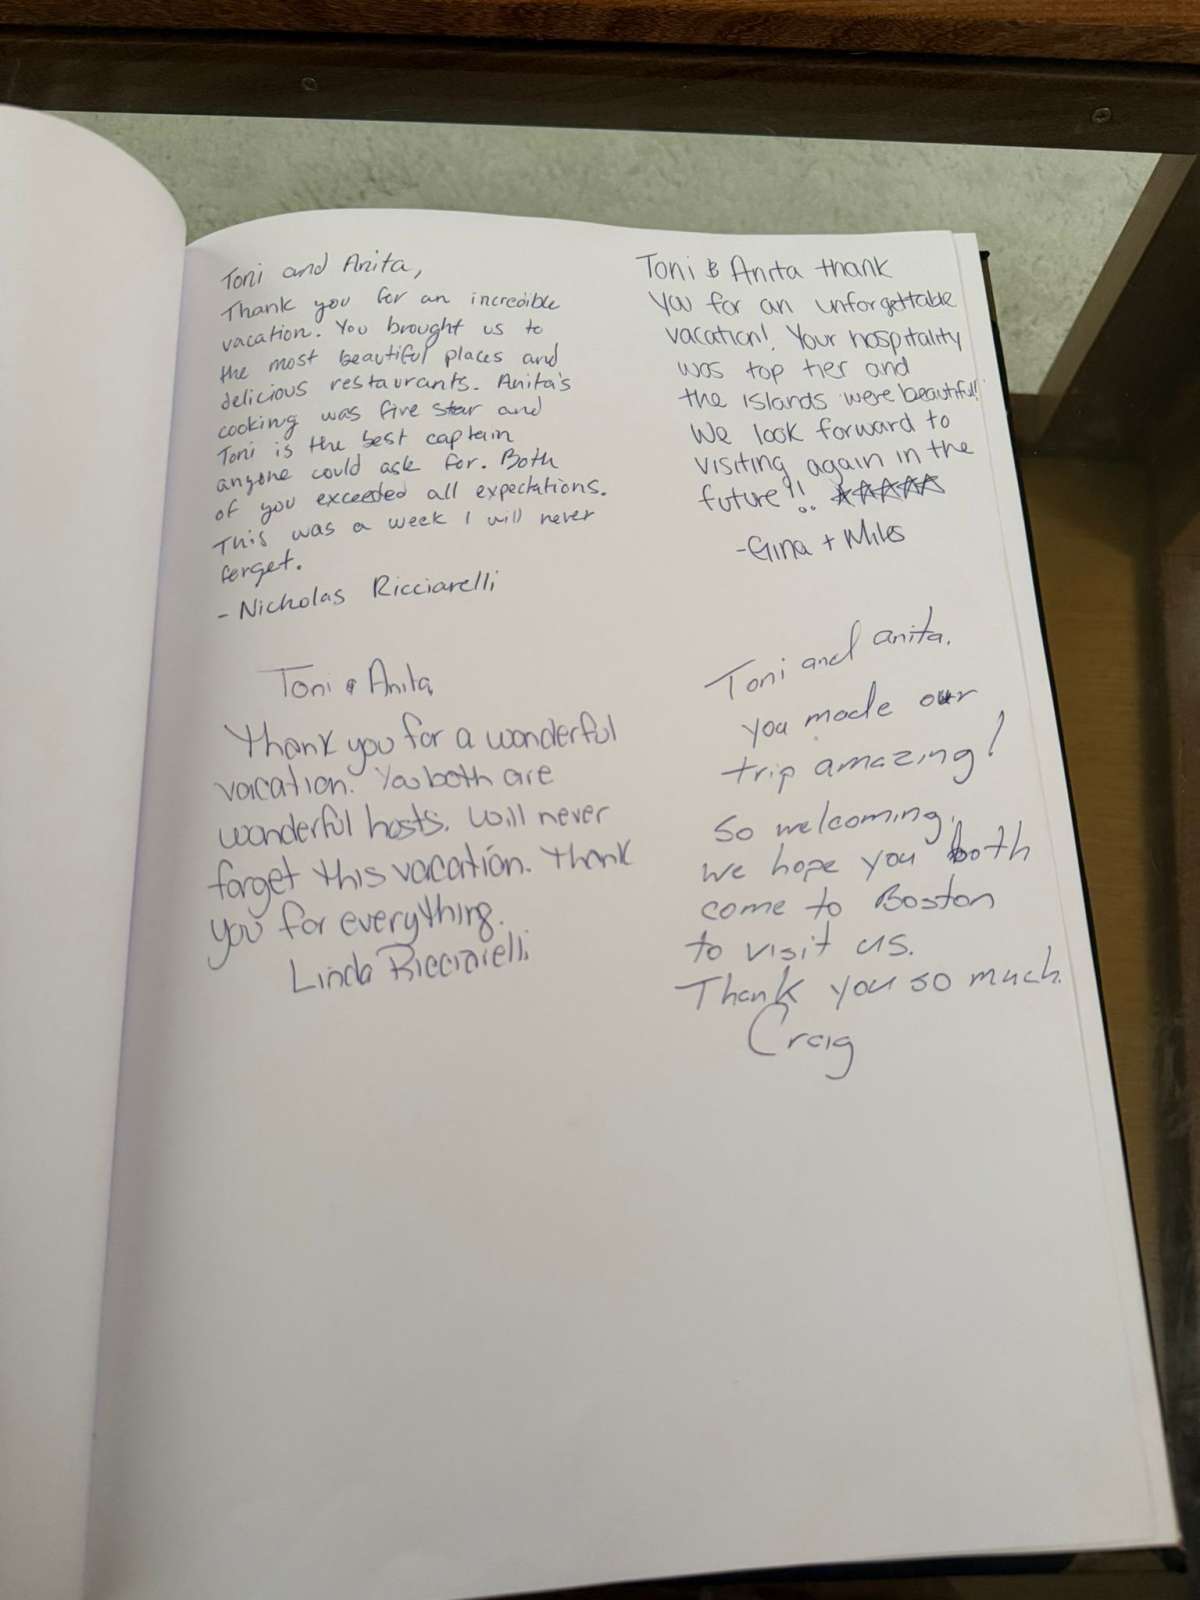 Toni and Anita,
Thank you for an incredible
vacation. You brought us to
the most beautiful places and
delicious restaurants. Anita's
cooking was five star and
Toni is the best captain
anyone could ask for. Both
of you exceeded all expectations.
This was a week I will never
forget.
- Nicholas Ricciarelli
Toni & Anita thank
you for an unforgettable
vacation! Your hospitality
was top tier and
the islands were beautiful!
We look forward to
visiting again in the
future!! ☆☆☆☆☆
-Gina + Miles
Toni & Anita,
Thank you for a wonderful
vacation. You both are
wonderful hosts. Will never
forget this vacation. Thank
you for everything.
Linda Ricciarelli
Toni and anita.
you made our
trip amazing!
So welcoming.
we hope you both
come to Boston
to visit us.
Thank you so much.
Craig